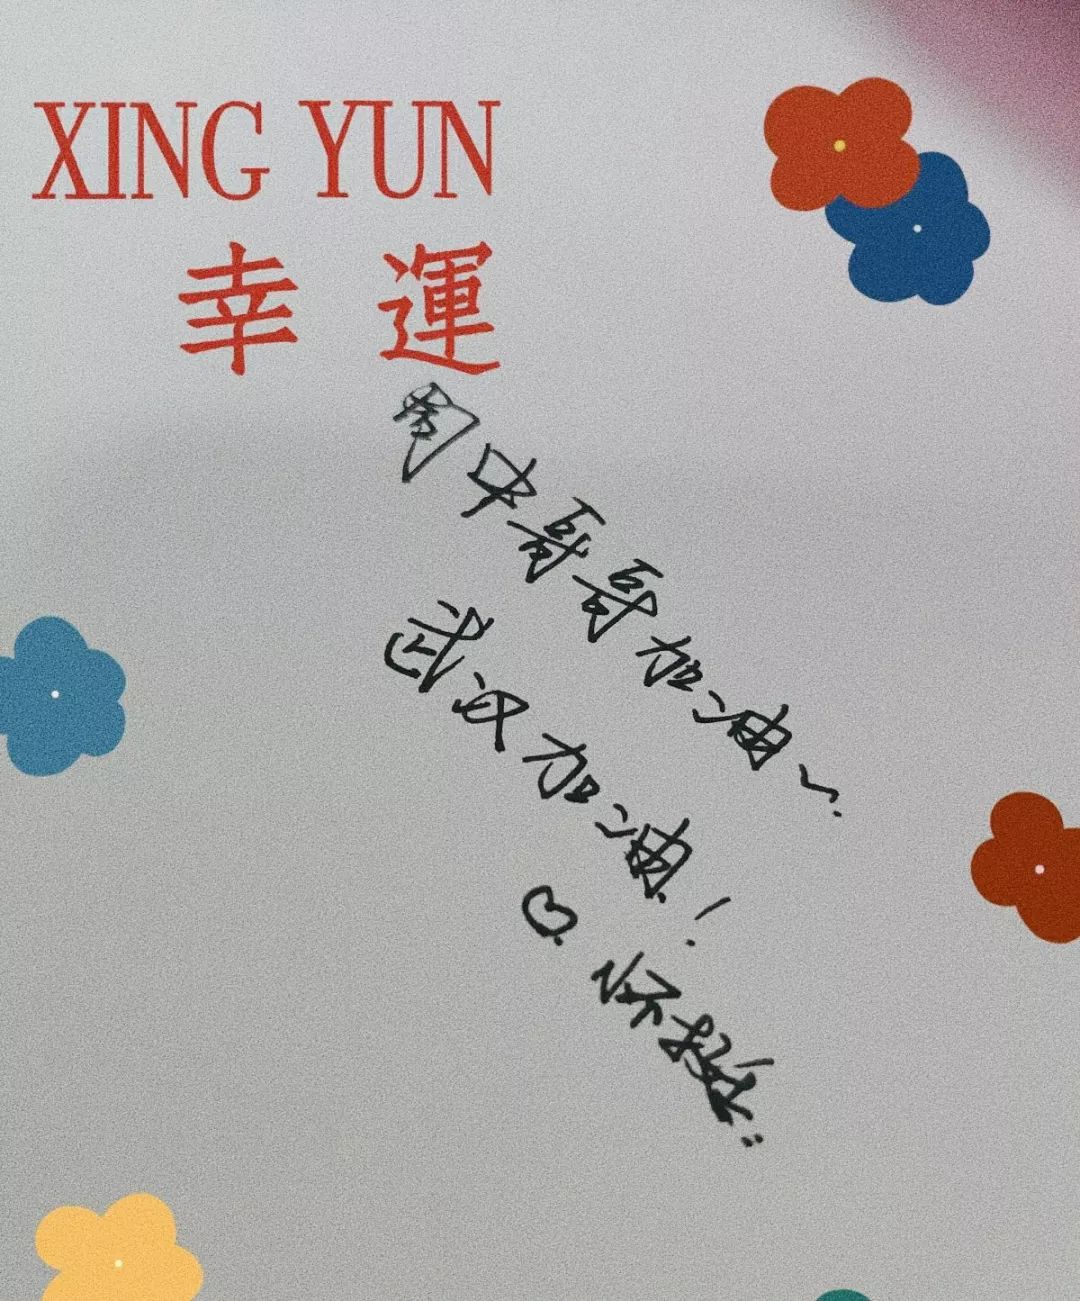 XING YUN
幸運
周中哥哥加油~
武汉加油！
♡怀